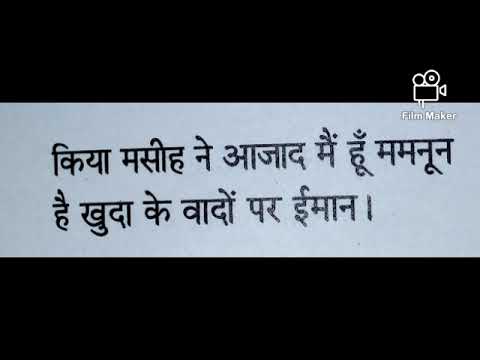 Film Maker
किया मसीह ने आजाद मैं हूँ ममनून
है खुदा के वादों पर ईमान।